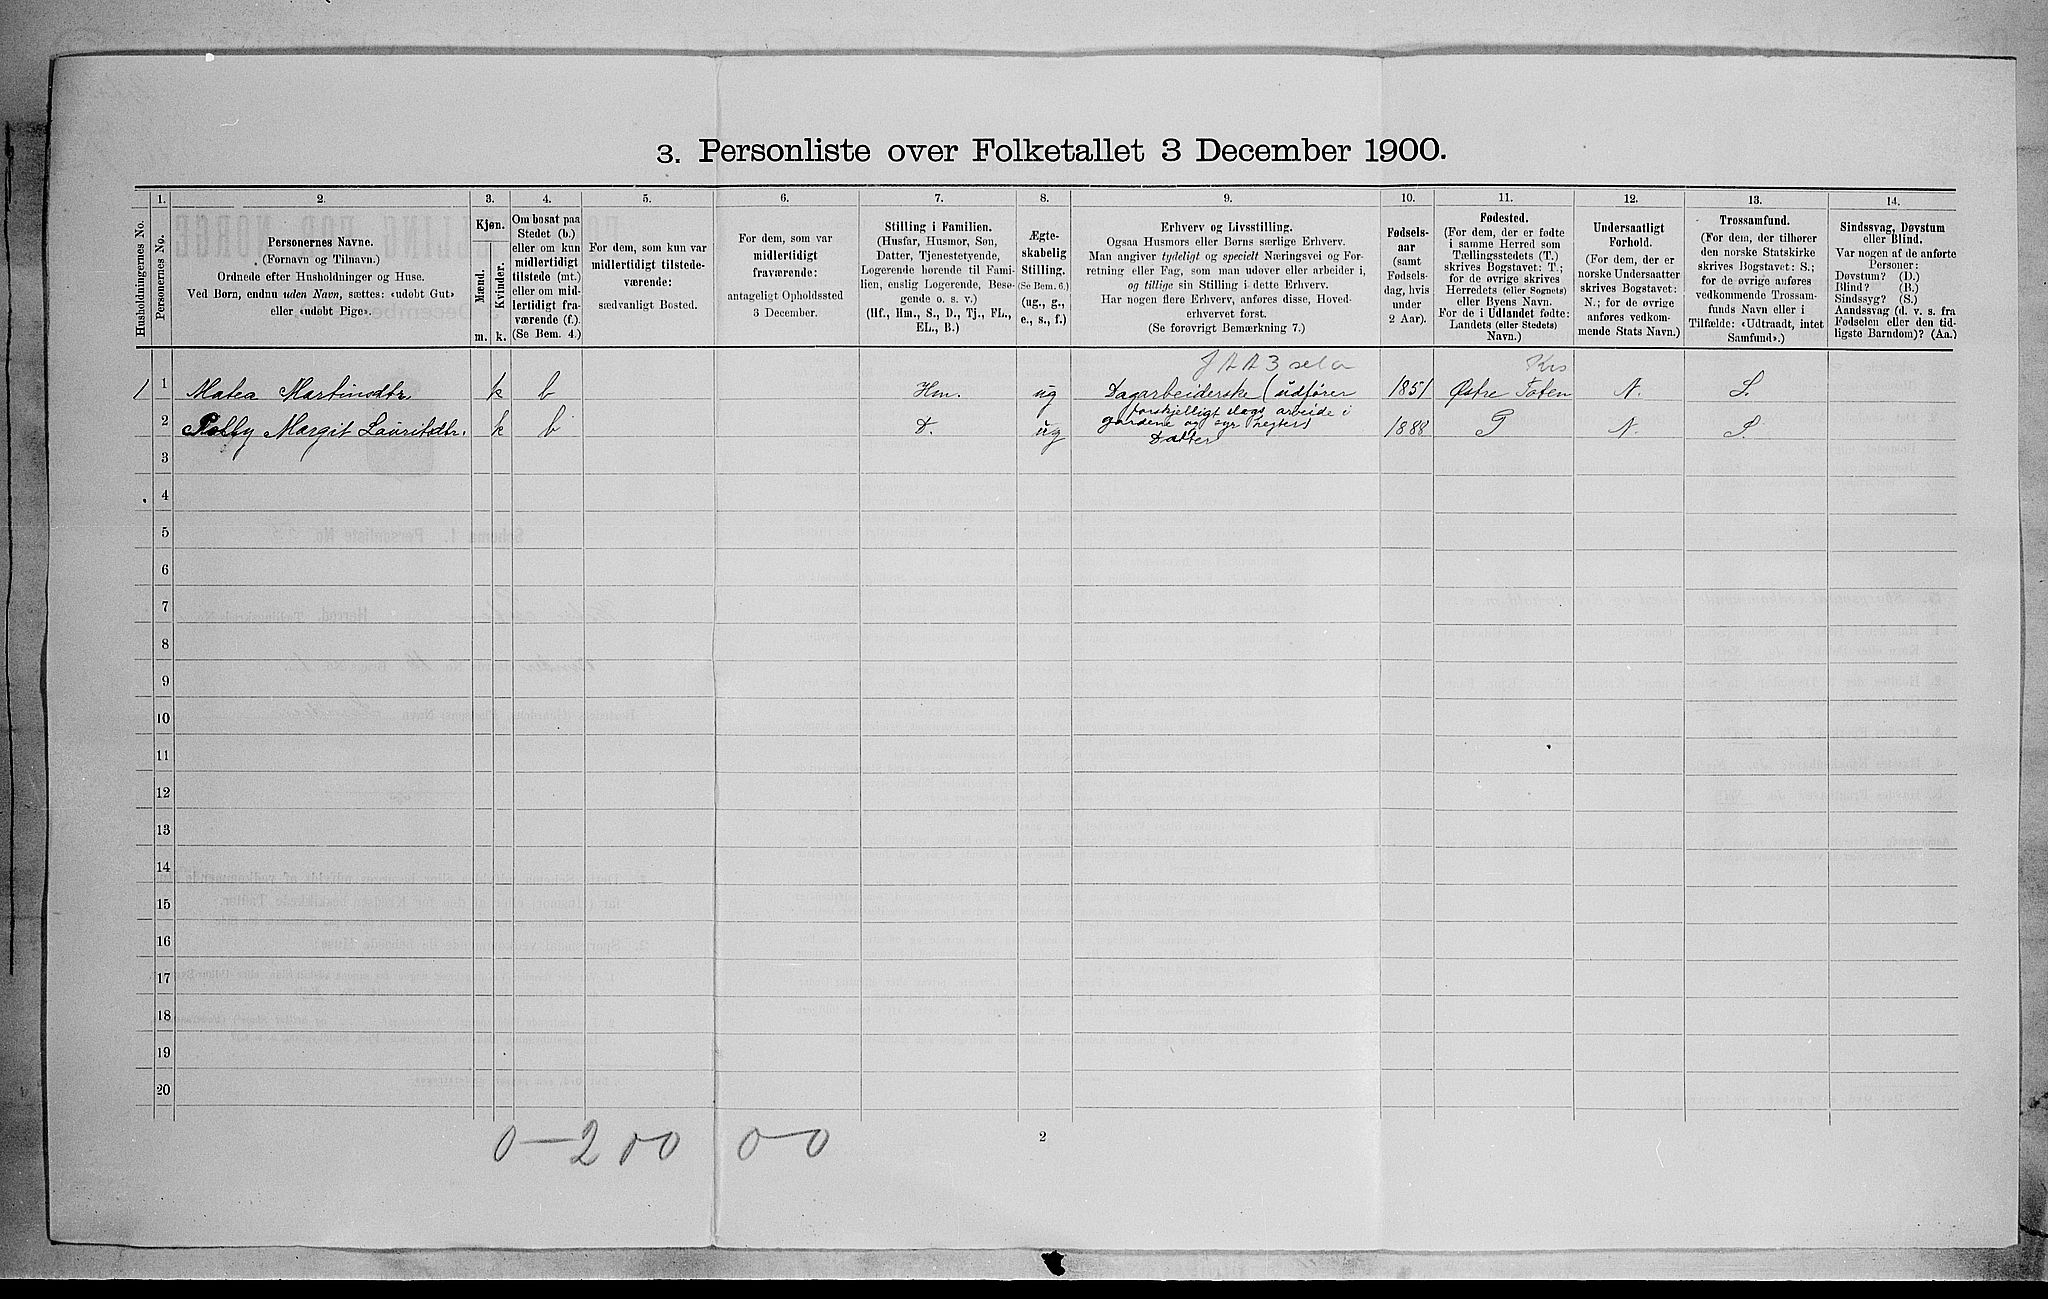 3. Personliste over Folketallet 3 December 1900.
1. 2. 3. 4. 5. 6. 7. 8. 9. 10. 11. 12. 13. 14.
Husholdningernes No.
Personernes No.
Personernes Navne.
(Fornavn og Tilnavn.)
Ordnede efter Husholdninger og Huse.
Ved Børn, endnu uden Navn, sættes: «udøbt Gut»
eller «udøbt Pige».
Kjøn.
Mænd.
Kvinder.
m. k.
Om bosat paa
Stedet (b.)
eller om kun
midlertidigt
tilstede (mt.)
eller om mid-
lertidigt fra-
værende (f.)
(Se Bem. 4.)
For dem, som kun var
midlertidigt tilstede-
værende:
sædvanligt Bosted.
For dem, som var
midlertidigt
fraværende:
antageligt Opholdssted
3 December.
Stilling i Familien.
(Husfar, Husmor, Søn,
Datter, Tjenestetyende,
Logerende hørende til Fami-
lien, enslig Logerende, Besø-
gende o. s. v.)
(Hf., Hm., S., D., Tj., FL.,
EL., B.)
Ægte-
skabelig
Stilling.
(Se Bem. 6.)
(ug., g.,
e., s., f.)
Erhverv og Livsstilling.
Ogsaa Husmors eller Børns særlige Erhverv.
Man angiver tydeligt og specielt Næringsvei og For-
retning eller Fag, som man udøver eller arbeider i,
og tillige sin Stilling i dette Erhverv.
Har nogen flere Erhverv, anføres disse, Hoved-
erhvervet først.
(Se forøvrigt Bemærkning 7.)
Fødsels-
aar
(samt
Fødsels-
dag, hvis
under
2 Aar).
Fødested.
(For dem, der er fødte
i samme Herred som
Tællingsstedets (T.)
skrives Bogstavet: T.;
for de øvrige skrives
Herredets (eller Sognets)
eller Byens Navn.
For de i Udlandet fødte:
Landets (eller Stedets)
Navn.)
Undersaatligt
Forhold.
(For dem, der er
norske Undersaatter
skrives Bogstavet:
N.; for de øvrige
anføres vedkom-
mende Stats Navn.)
Trossamfund.
(For dem, der tilhører
den norske Statskirke
skrives Bogstavet: S.;
for de øvrige anføres
vedkommende Trossam-
funds Navn eller i
Tilfælde: «Udtraadt, intet
Samfund».)
Sindssvag, Døvstum
eller Blind.
Var nogen af de anførte
Personer:
Døvstum? (D.)
Blind? (B.)
Sindssyg? (S.)
Aandssvag (d. v. s. fra
Fødselen eller den tid-
ligste Barndom)? (Aa.)
Krs
1 1 Matea Martinsdtr. k b Hm. ug Dagarbeiderske (udfører 1851 Østre Toten N. S.
forskjelligt slags arbeide i
2 Margit Lauritsdtr. k b D. ug 1888 T N. S.
gaardene og
Datter
3
4
5
6
7
8
9
10
11
12
13
14
15
16
17
18
19
20
0 - 2 00 0-0
2